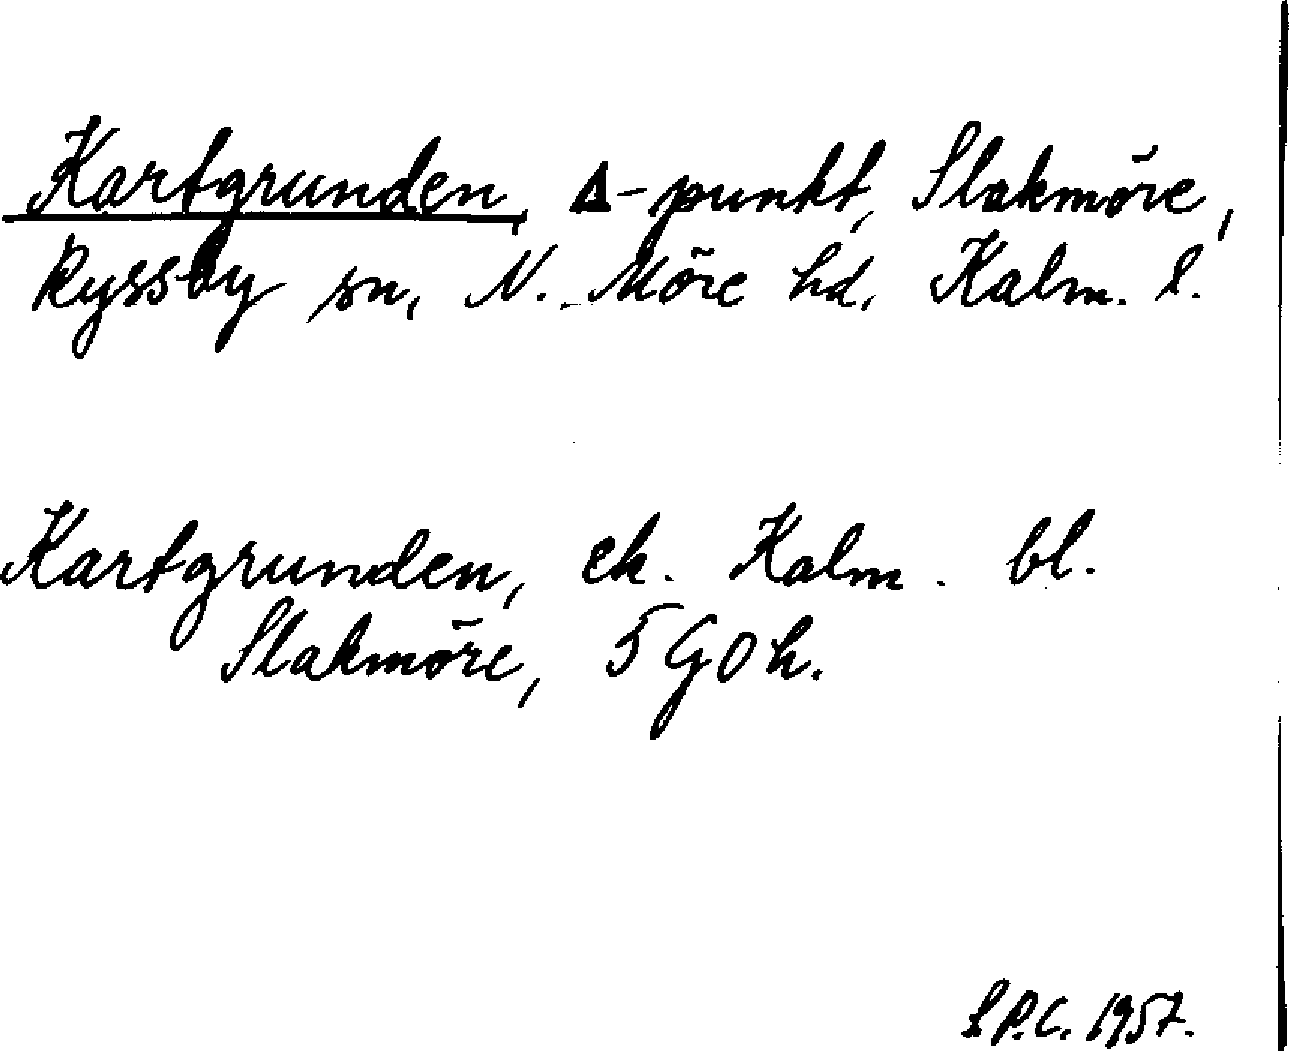 Kartgrunden, Δ-punkt, Slakmöre,
Ryssby sn, N. Möre hd, Kalm. l.
Kartgrunden, ek. Kalm. bl.
Slakmöre, 5 G 0 h.
S P.C. 1957.